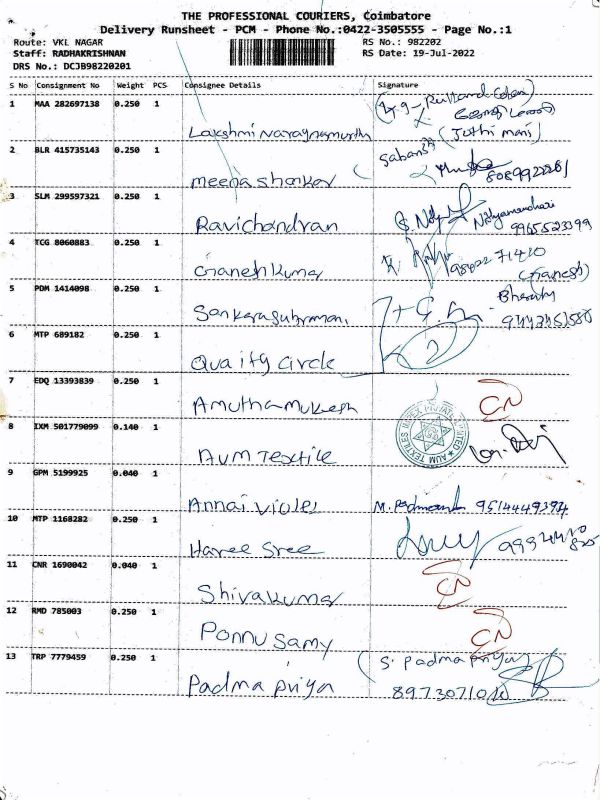 THE PROFESSIONAL COURIERS, Coimbatore
Delivery Runsheet - PCM - Phone No.:0422-3505555 - Page No.:1
Route: VKL NAGAR RS No.: 982202
Staff: RADHAKRISHNAN RS Date: 19-Jul-2022
DRS No.: DCJB98220201
S No Consignment No Weight PCS Consignee Details Signature
1 MAA 282697138 0.250 1
Lakshmi Naraynamurthy (Jothi mani)
2 BLR 415735143 0.250 1
meena shankar 8089922261
3 SLM 299597321 0.250 1
Ravichandran Nithyanandhari 9965523399
4 TCG 8060883 0.250 1
Ganesh Kumar (Ganesh)
5 PDM 1414098 0.250 1 Bharathy
Sankarasubramani
6 MTP 689182 0.250 1
Quality Circle 2
7 EDQ 13393839 0.250 1
Amutha Mukesh CN
8 IXM 501779099 0.140 1 AUM TEXTILES IMPEX PRIVATE LIMITED
AUM TEXTILE
9 GPM 5199925 0.040 1
Annai Violet 9514449394
10 MTP 1168282 0.250 1
Haree Sree
11 CNR 1690042 0.040 1
Shivakumar CN
12 RMD 785003 0.250 1
Ponnusamy CN
13 TRP 7779459 0.250 1 (S. Padma priya)
Padma priya 8973071010